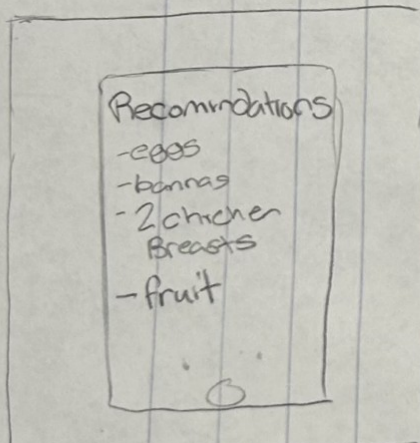 Recommdations
-eggs
-bannas
-2 chicken
Breasts
-fruit